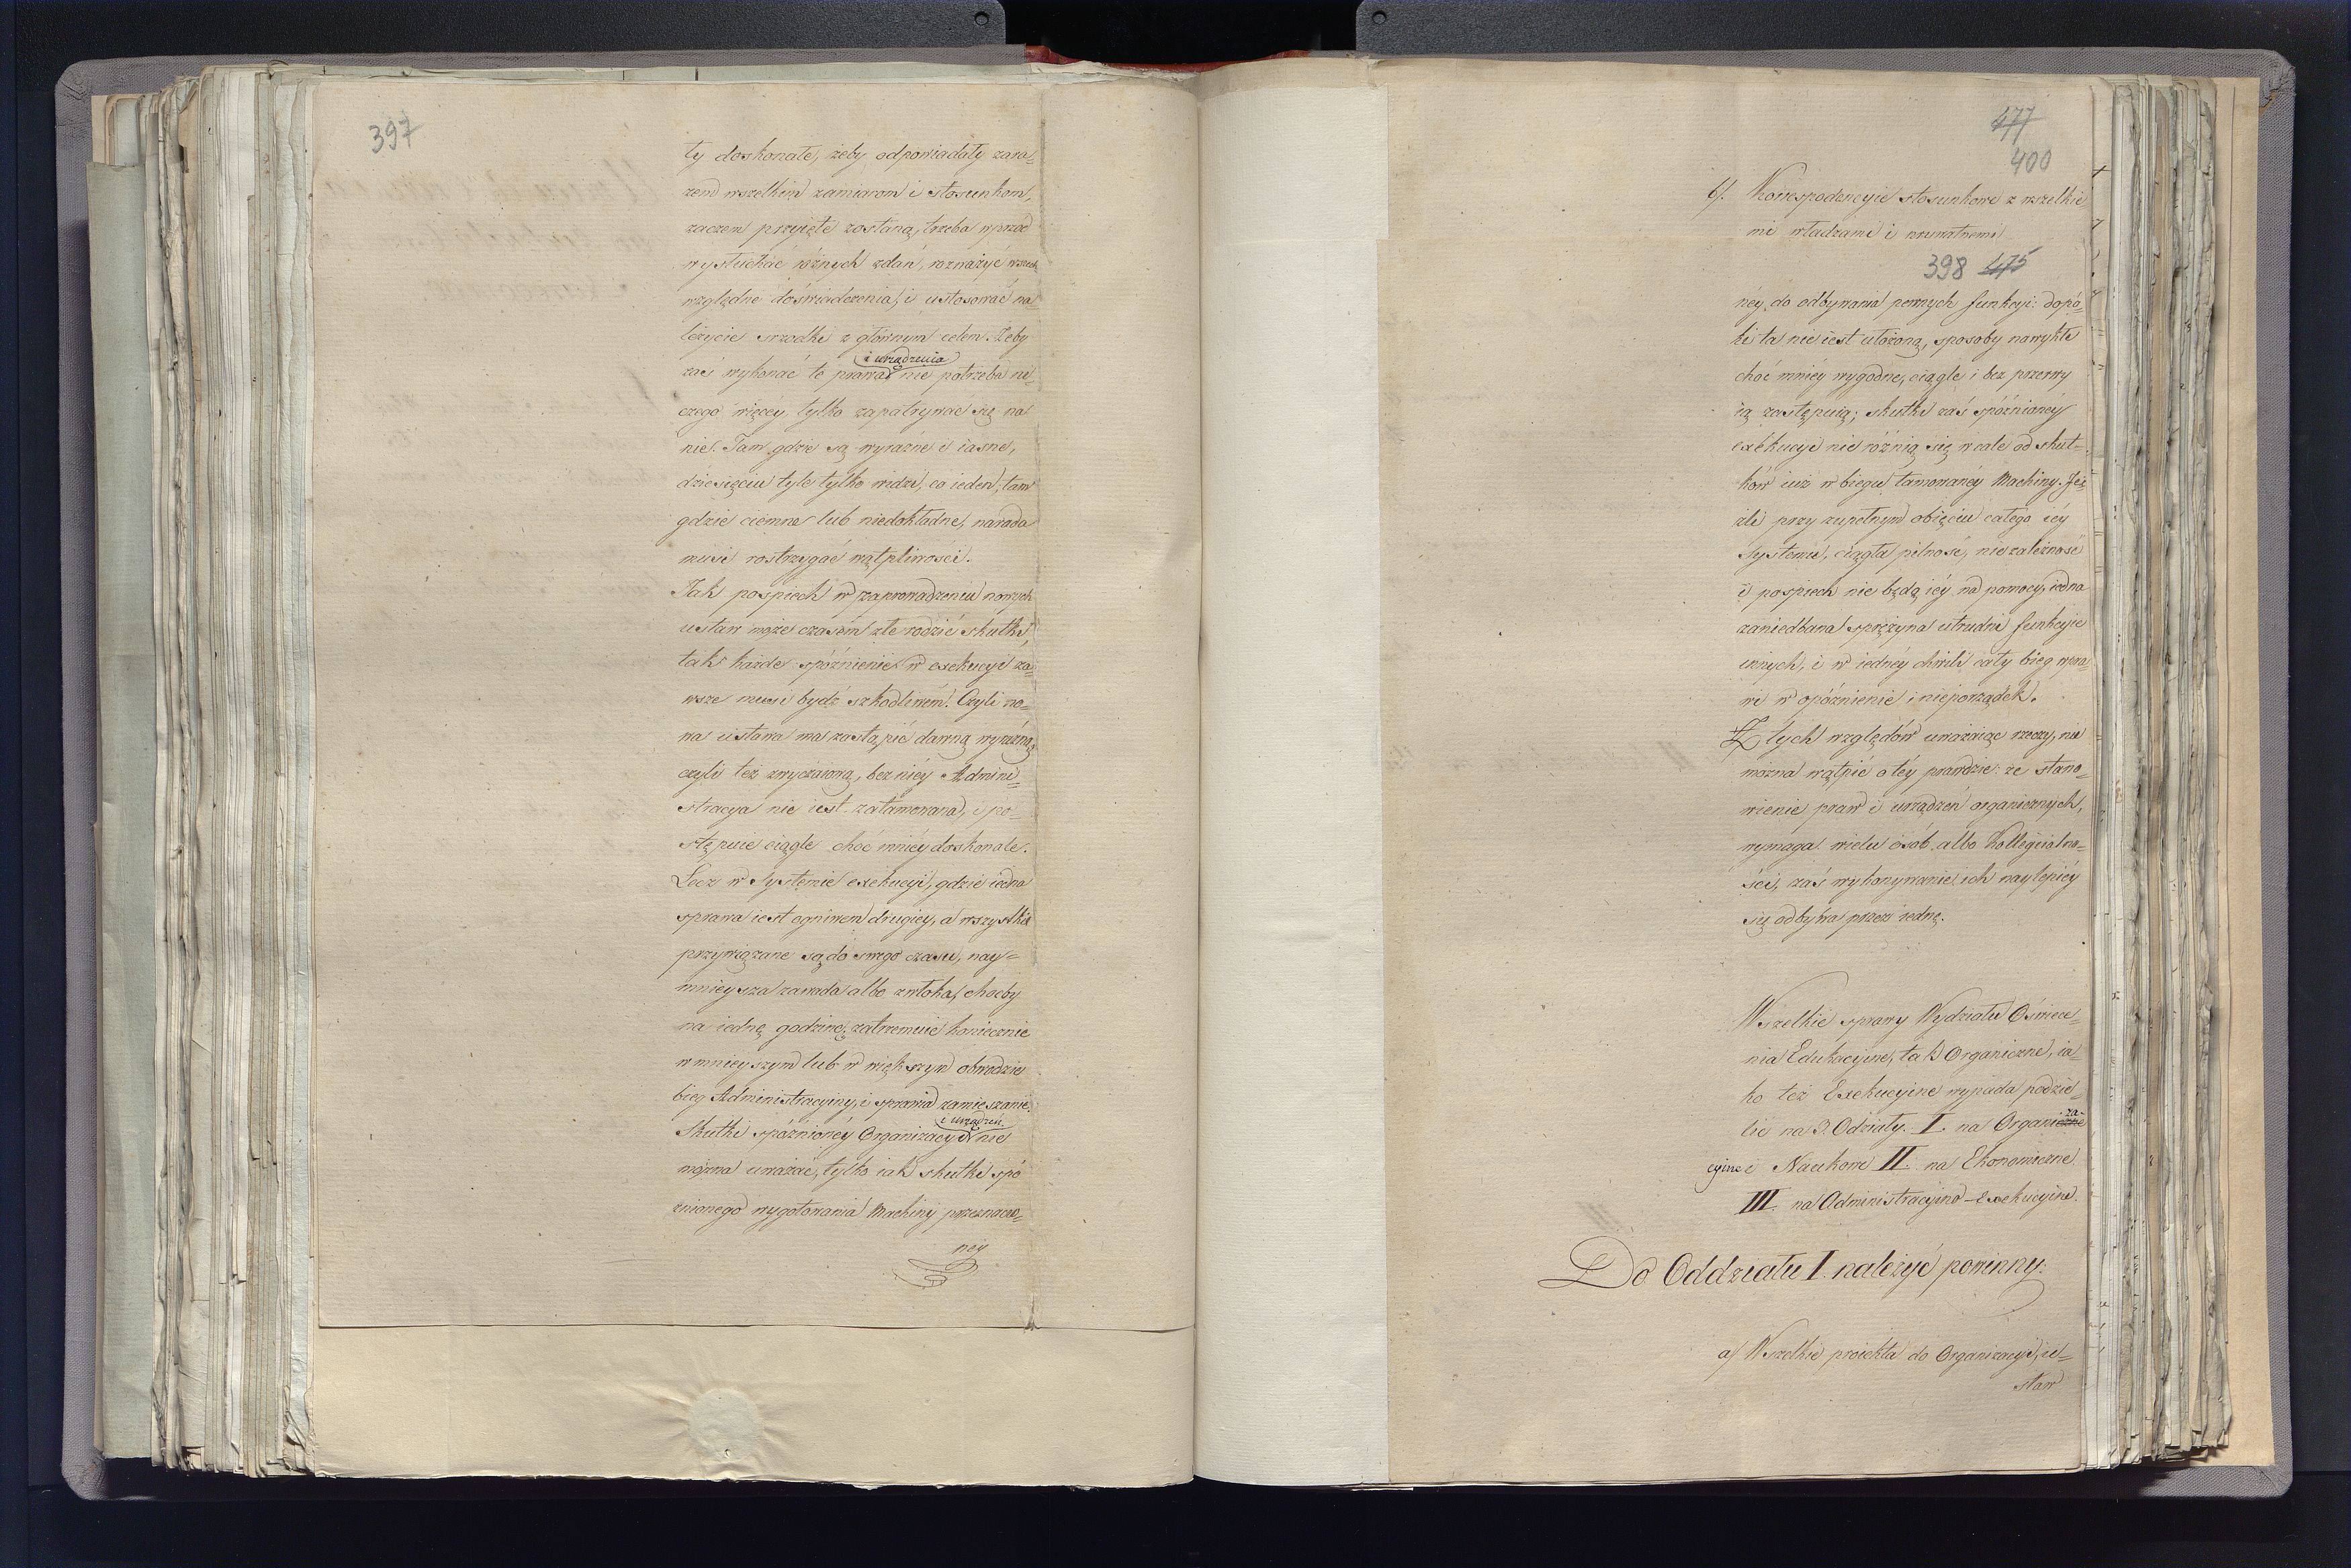 397
ły doskonałe, żeby odpowiadały zara=
zem wszelkim zamiarom i stosunkom,
zaczem przyięte zostaną, trzeba wprzod
wysłuchać różnych zdań, rozważyć wszech
względne doświadczenia, i ustosować na
leżycie srzodki z głównym celem. Żeby
i urządzenia
zaś wykonać te prawa nie potrzeba ni=
czego więcey, tylko zapatrywać się na
nie. Tam gdzie są wyraźne i iasne,
dziesięciu tyle tylko widzi, co ieden, tam
gdzie ciemne lub niedokładne, narada
musi rostrzygać wątpliwości.
Jak pospiech w zaprowadzeniu nowych
ustaw może czasem złe rodzić skutki,
tak każde spóźnienie w exekucyi za=
wsze musi bydź szkodliwém. Czyli no=
wa ustawa ma zastąpić dawną wyraźną,
czyli też zwyczaiową, bez niéy Admini=
stracya nie iest zatamowana, i po=
stępuie ciągle choć mniéy doskonale.
Lecz w Systemie exekucyi, gdzie iedna
sprawa iest ogniwem drugiey, a wszystkie
przywiązane są do swego czasu, nay=
mnieysza zawada albo zwłoka, choćby
na iednę godzinę, zatrzemuie koniecznie
w mnieyszym lub w większym obwodzie
bieg Administracyiny, i sprawia zamieszanie.
i urządzeń
Skutki spóźnionéy Organizacyi nie
można uważać, tylko iak skutki spó
źnionego wygotowania Machiny przeznaczo=
néy
477
400
6/. Korrespodencyie stosunkowe z wszelkie
mi władzami i prywatnemi
398 475
néy do odbywania pewnych funkcyi: dopó=
ki ta nie iest ułożoną, sposoby nawykłe
choć mniéy wygodne, ciągle i bez przerwy
ią zastępuią; skutki zaś spóźnionéy
exekucyi nie różnią się wcale od skut=
ków iuż w biegu tamowanéy Machiny. Jeż=
żli przy zupełnym obięciu całego iéy
Systemu, ciągła pilność, niezależność
i pospiech nie będą iéy na pomocy, iedna
zaniedbana sprężyna utrudni funkcyie
innych, i w iednéy chwili cały bieg wpra=
wi w opóźnienie i nieporządek.
Z tych względów uważaiąc rzeczy, nie
można wątpić o téy prawdzie: że stano=
wienie praw i urządzeń organicznych,
wymaga wielu osób albo Kollegialno=
ści, zaś wykonywanie ich naylepiéy
się odbywa przez iednę.
Wszelkie sprawy Wydziału Oświece=
nia Edukacyine, tak Organiczne, ia=
ko też Exekucyine wypada podzie=
lić na 3. Odziały. I. na Organiczne
za-
cyine i Naukowe II. na Ekonomiczne.
III. na Administracyino-Exekucyine.
Do Oddziału I. należyć powinny:
a/ Wszelkie proiekta do Organizacyi, u=
staw